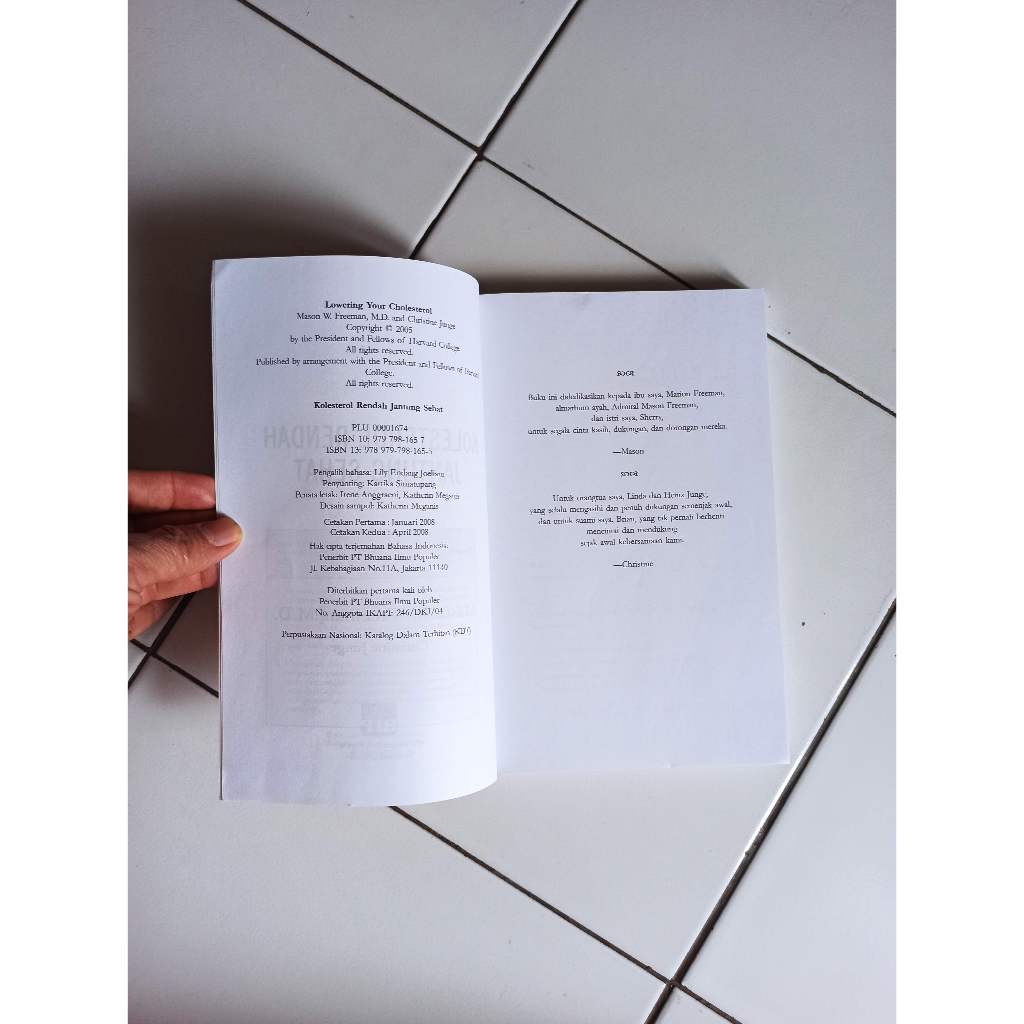 Lowering Your Cholesterol
Mason W. Freeman, M.D. and Christine Junge
Copyright © 2005
by the President and Fellows of Harvard College
All rights reserved.
Published by arrangement with the President and Fellows of Harvard
College.
All rights reserved.
Kolesterol Rendah Jantung Sehat
PLU 00001674
ISBN 10: 979 798-165 7
ISBN 13: 978 979-798-165-5
Pengalih bahasa: Lily Endang Joeliani
Penyunting: Kartika Simatupang
Penata letak: Irene Anggraeni, Katherin Meganis
Desain sampul: Katherin Meganis
Cetakan Pertama : Januari 2008
Cetakan Kedua : April 2008
Hak cipta terjemahan Bahasa Indonesia:
Penerbit PT Bhuana Ilmu Populer
Jl. Kebahagiaan No.11A, Jakarta 11140
Diterbitkan pertama kali oleh
Penerbit PT Bhuana Ilmu Populer
No. Anggota IKAPI: 246/DKI/04
Perpustakaan Nasional: Katalog Dalam Terbitan (KDT)
Buku ini didedikasikan kepada ibu saya, Marion Freeman,
almarhum ayah, Admiral Mason Freeman,
dan istri saya, Sherry,
untuk segala cinta kasih, dukungan, dan dorongan mereka.
—Mason
Untuk orangtua saya, Linda dan Heinz Junge,
yang selalu mengasihi dan penuh dukungan semenjak awal,
dan untuk suami saya, Brian, yang tak pernah berhenti
menemani dan mendukung
sejak awal kebersamaan kami.
—Christine